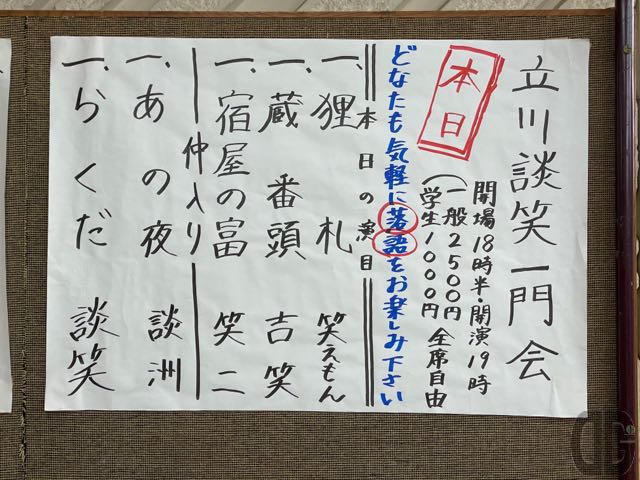 立川談笑一門会
本日
開場18時半・開演19時
(一般2500円
学生1000円 全席自由
どなたも気軽に落語をお楽しみ下さい
本日の演目
一、狸札 笑えもん
一、蔵番頭 吉笑
一、宿屋の富 笑二
仲入り
一、あの夜 談洲
一、らくだ 談笑